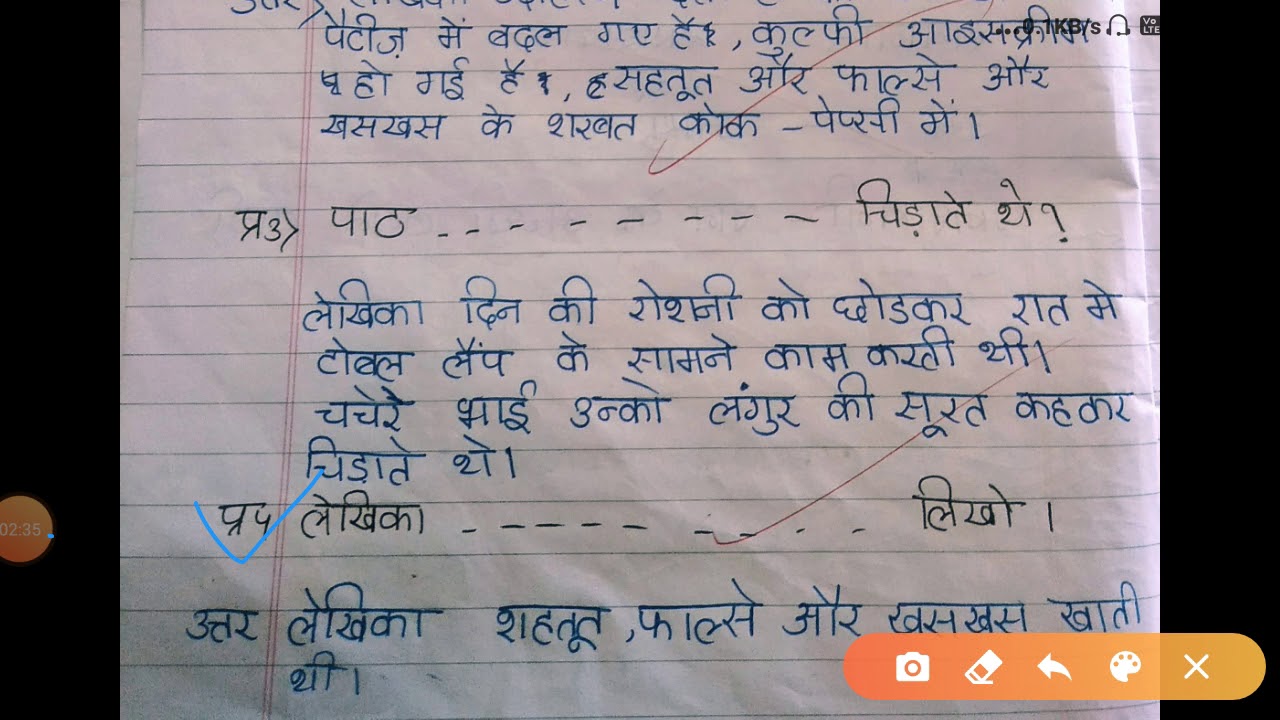 उत्तर>
पैटीज़ में बदल गए है, कुल्फी आइसक्रीम
...0.1KB/s Vo LTE
हो गई है, सहतूत और फाल्से और
खसखस के शरबत कोक - पेप्सी में।
प्र3> पाठ - - - - - - - चिड़ाते थे?
लेखिका दिन की रोशनी को छोडकर रात मे
टोबल लैंप के सामने काम करती थी।
चचेरे भाई उन्को लंगुर की सूरत कहकर
चिड़ाते थे।
प्र५ लेखिका - - - - - - - - - लिखो।
02:35
उत्तर लेखिका शहतूत, फाल्से और खसखस खाती
थी।